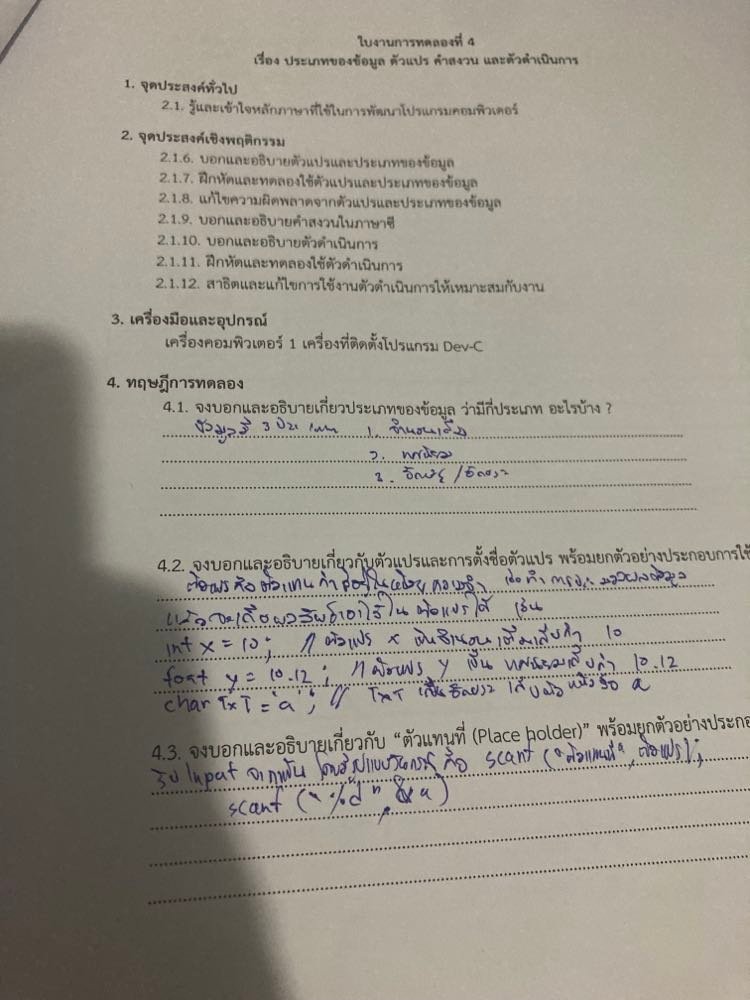 ใบงานการทดลองที่ 4
เรื่อง ประเภทของข้อมูล ตัวแปร คำสงวน และตัวดำเนินการ
1. จุดประสงค์ทั่วไป
2.1. รู้และเข้าใจหลักภาษาที่ใช้ในการพัฒนาโปรแกรมคอมพิวเตอร์
2. จุดประสงค์เชิงพฤติกรรม
2.1.6. บอกและอธิบายตัวแปรและประเภทของข้อมูล
2.1.7. ฝึกหัดและทดลองใช้ตัวแปรและประเภทของข้อมูล
2.1.8. แก้ไขความผิดพลาดจากตัวแปรและประเภทของข้อมูล
2.1.9. บอกและอธิบายคำสงวนในภาษาซี
2.1.10. บอกและอธิบายตัวดำเนินการ
2.1.11. ฝึกหัดและทดลองใช้ตัวดำเนินการ
2.1.12. สาธิตและแก้ไขการใช้งานตัวดำเนินการให้เหมาะสมกับงาน
3. เครื่องมือและอุปกรณ์
เครื่องคอมพิวเตอร์ 1 เครื่องที่ติดตั้งโปรแกรม Dev-C
4. ทฤษฎีการทดลอง
4.1. จงบอกและอธิบายเกี่ยวประเภทของข้อมูล ว่ามีกี่ประเภท อะไรบ้าง ?
ข้อมูลมี 3 ประเภท 1. จำนวนเต็ม
2. ทศนิยม
3. อักขระ
4.2. จงบอกและอธิบายเกี่ยวกับตัวแปรและการตั้งชื่อตัวแปร พร้อมยกตัวอย่างประกอบการใช้
ตัวแปร คือ ตัวแทนค่า
ตัวแปรได้ เช่น
int x = 10; // ตัวแปร x เป็นจำนวนเต็มเก็บค่า 10
foat y = 10.12; // ตัวแปร y เป็น ทศนิยมเก็บค่า 10.12
char TxT = 'a'; // TxT เป็นอักขระ เก็บตัวหนังสือ a
4.3. จงบอกและอธิบายเกี่ยวกับ “ตัวแทนที่ (Place holder)” พร้อมยกตัวอย่างประกอ
รับ Input จากแป้น คือ scanf ("ตัวแทนที่", ตัวแปร);
scanf ("%d", &a)